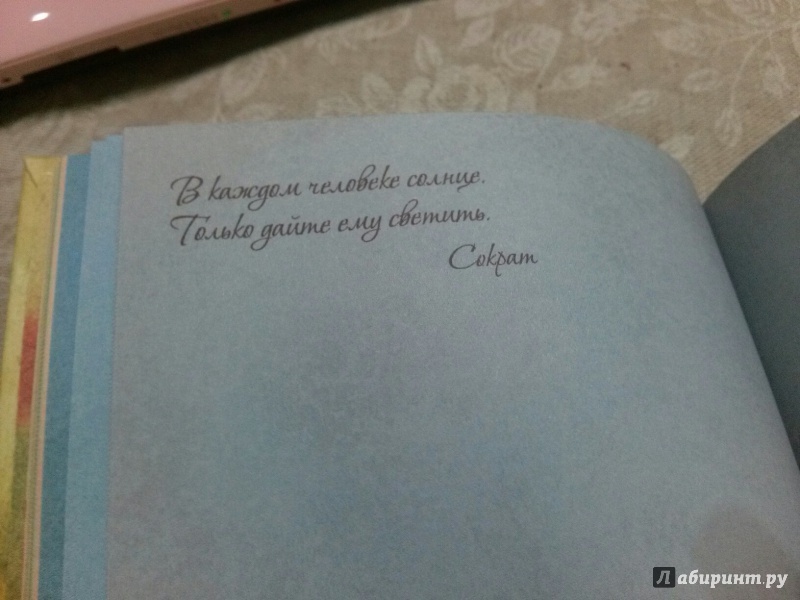 В каждом человеке солнце.
Только дайте ему светить.
Сократ
Лабиринт.ру